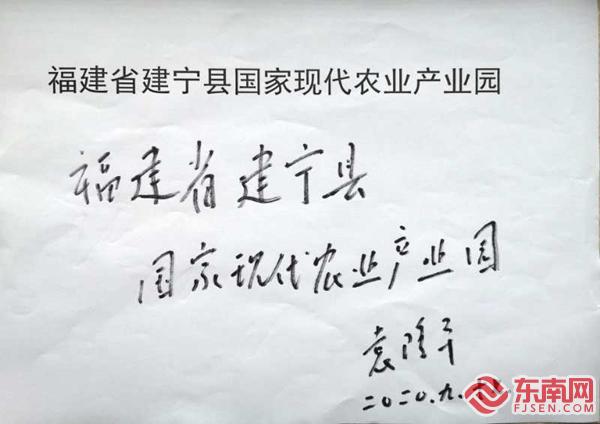 福建省建宁县国家现代农业产业园
福建省建宁县
国家现代农业产业园
袁隆平
二〇二〇.九.
东南网
FJSEN.COM